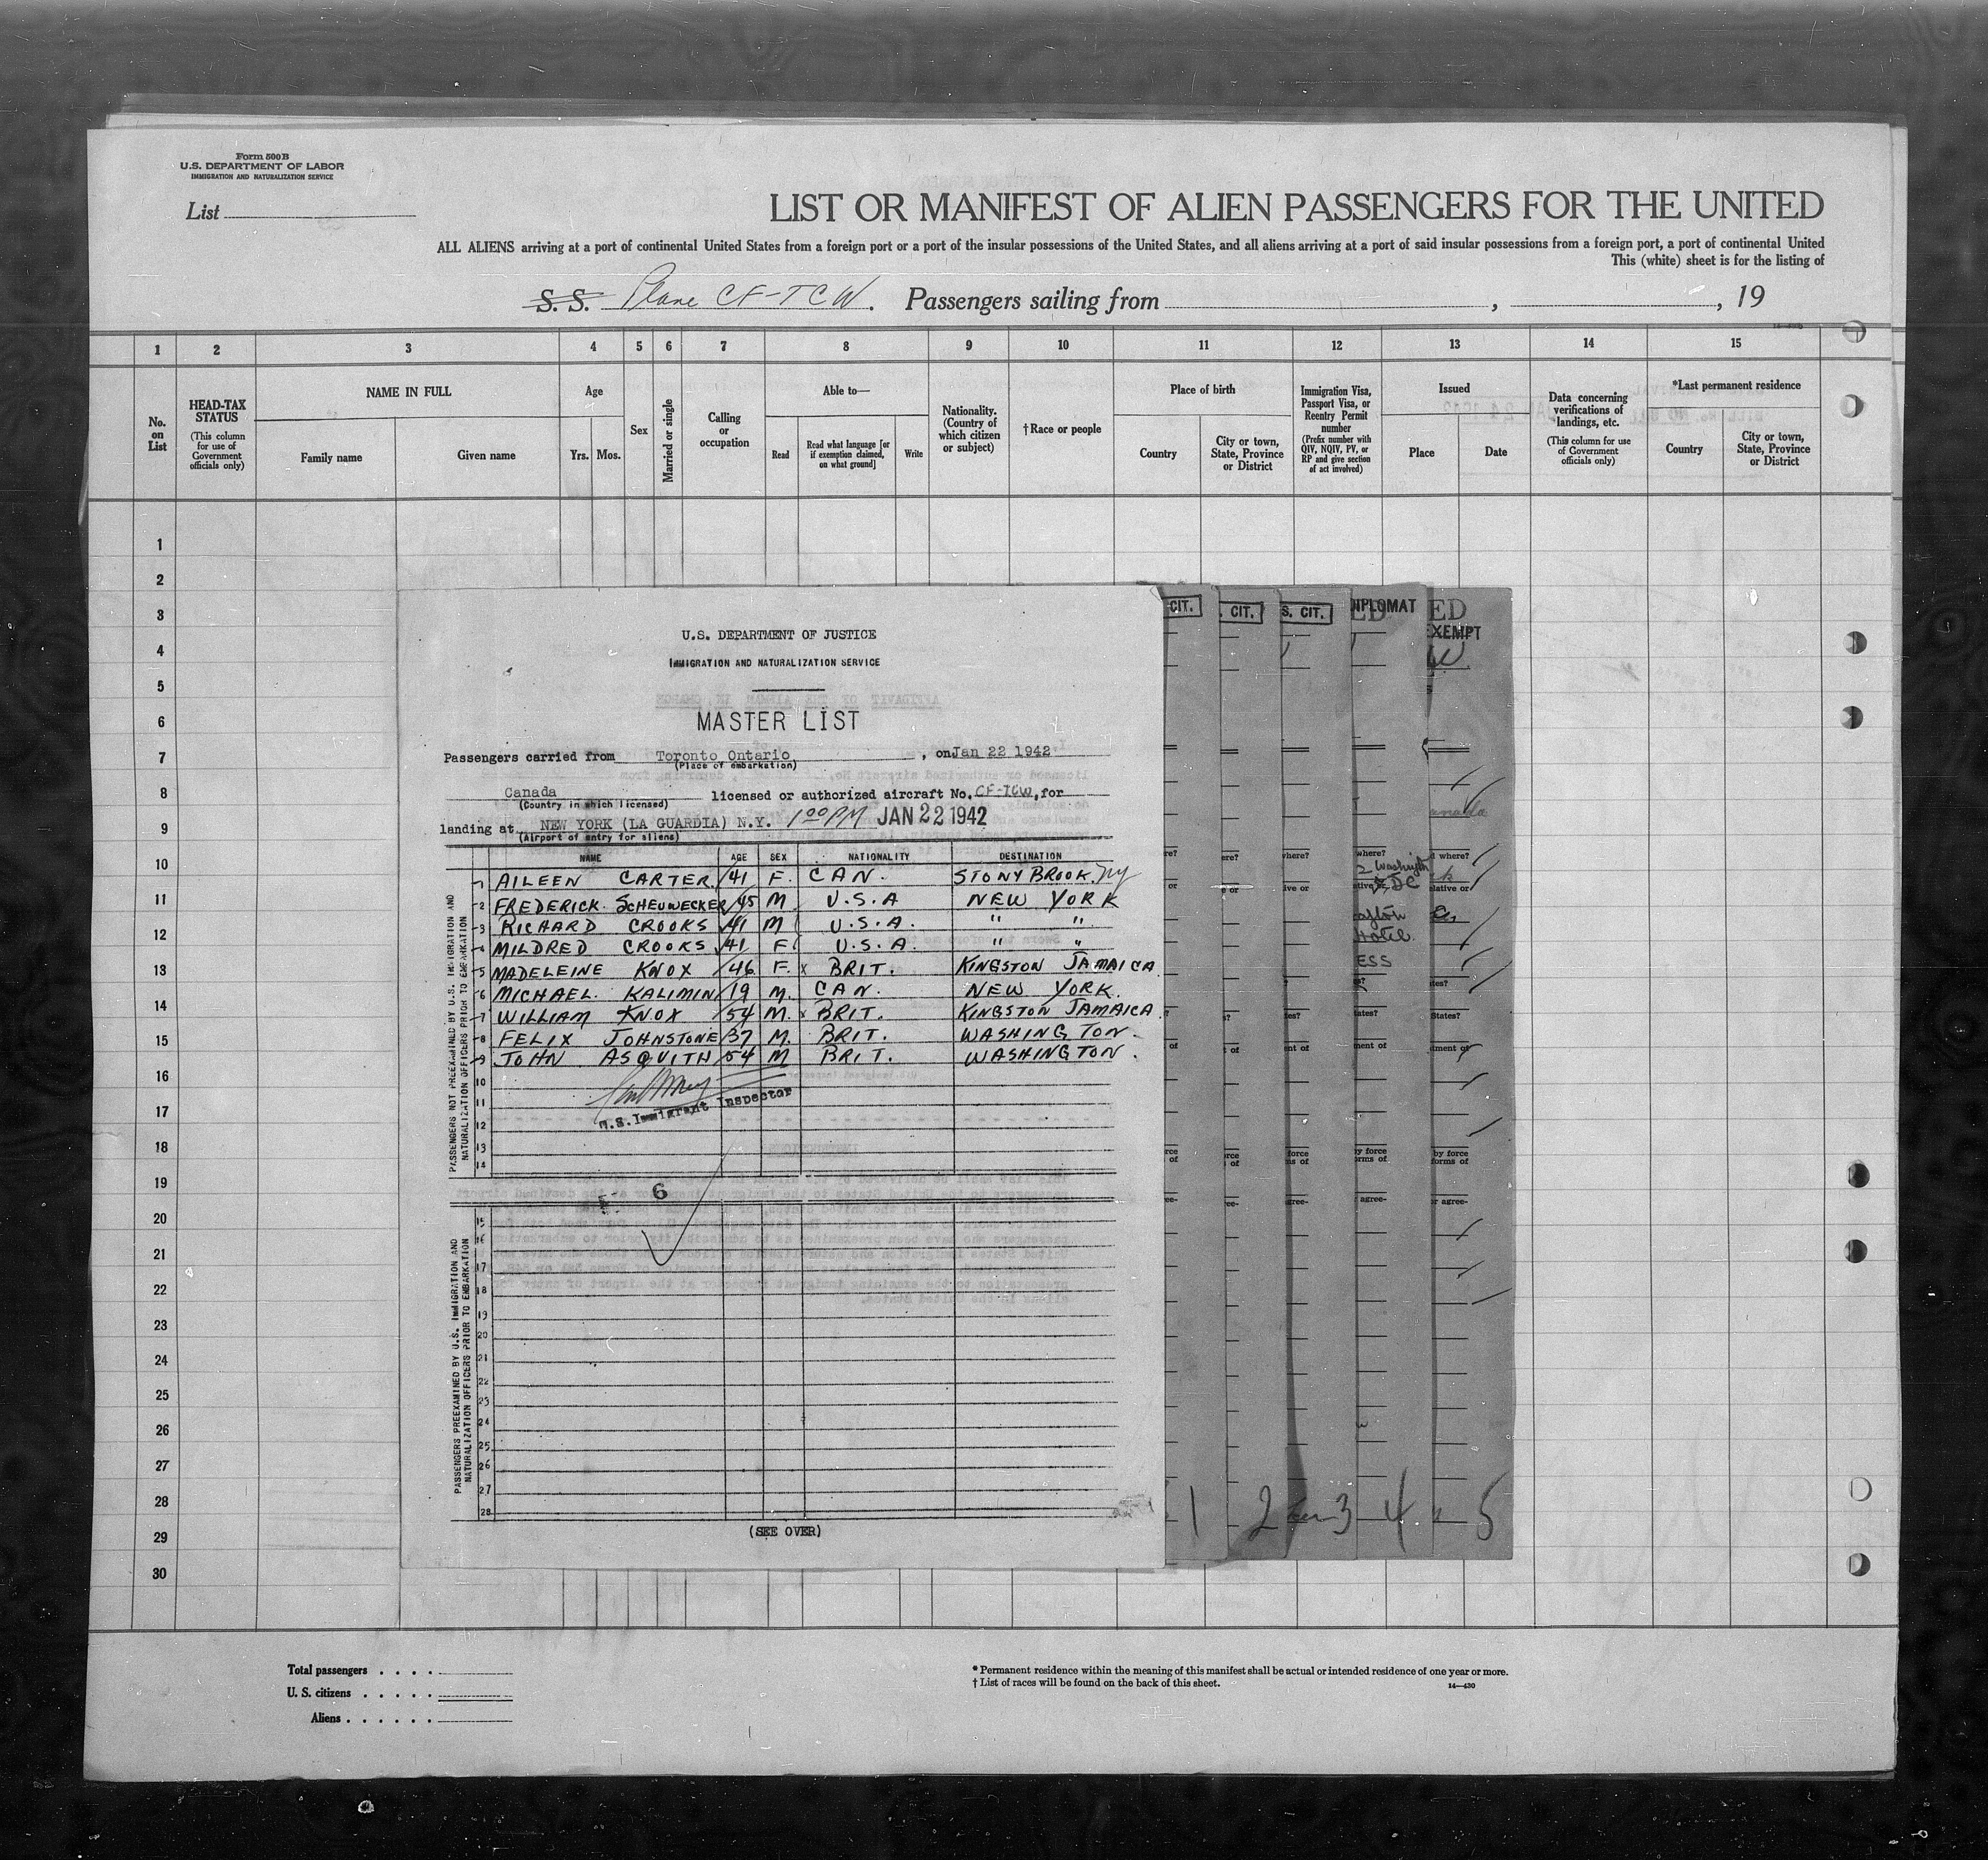 Form 500 B
U.S. DEPARTMENT OF LABOR
IMMIGRATION AND NATURALIZATION SERVICE
List
LIST OR MANIFEST OF ALIEN PASSENGERS FOR THE UNITED
ALL ALIENS arriving at a port of continental United States from a foreign port or a port of the insular possessions of the United States, and all aliens arriving at a port of said insular possessions from a foreign port, a port of continental United
This (white) sheet is for the listing of
S. S. Plane CF-TCW. Passengers sailing from , , 19
1 2 3 4 5 6 7 8 9 10 11 12 13 14 15
No. on List
HEAD-TAX STATUS
(This column for use of Government officials only)
NAME IN FULL
Family name Given name
Age
Yrs. Mos.
Sex
Married or single
Calling or occupation
Able to—
Read Read what language [or if exemption claimed, on what ground] Write
Nationality. (Country of which citizen or subject)
†Race or people
Place of birth
Country City or town, State, Province or District
Immigration Visa, Passport Visa, or Reentry Permit number
(Prefix number with QIV, NQIV, PV, or RP and give section of act involved)
Issued
Place Date
Data concerning verifications of landings, etc.
(This column for use of Government officials only)
*Last permanent residence
Country City or town, State, Province or District
1
2
3
4
5
6
7
8
9
10
11
12
13
14
15
16
17
18
19
20
21
22
23
24
25
26
27
28
29
30
U.S. DEPARTMENT OF JUSTICE
IMMIGRATION AND NATURALIZATION SERVICE
MASTER LIST
Passengers carried from Toronto Ontario , on Jan 22 1942
(Place of embarkation)
Canada licensed or authorized aircraft No. CF-TCW, for
(Country in which licensed)
landing at NEW YORK (LA GUARDIA) N.Y. 1 00 PM JAN 22 1942
(Airport of entry for aliens)
NAME AGE SEX NATIONALITY DESTINATION
PASSENGERS NOT PREEXAMINED BY U.S. IMMIGRATION AND NATURALIZATION OFFICERS PRIOR TO EMBARKATION
1 AILEEN CARTER 41 F. CAN. STONY BROOK. NY
2 FREDERICK SCHEUWECKER 45 M U.S.A NEW YORK
3 RICHARD CROOKS 41 M U.S.A. " "
4 MILDRED CROOKS 41 F. U.S.A. " "
5 MADELEINE KNOX 46 F. x BRIT. KINGSTON JAMAICA
6 MICHAEL. KALIMIN 19 M. CAN. NEW YORK.
7 WILLIAM KNOX 54 M. x BRIT. KINGSTON JAMAICA
8 FELIX JOHNSTONE 37 M. BRIT. WASHINGTON.
9 JOHN ASQUITH 54 M BRIT. WASHINGTON.
10
11
U.S. Immigrant Inspector
12
13
14
6
PASSENGERS PREEXAMINED BY U.S. IMMIGRATION AND NATURALIZATION OFFICERS PRIOR TO EMBARKATION
15
16
17
18
19
20
21
22
23
24
25
26
27
28
(SEE OVER)
CIT.
. CIT.
S. CIT.
DIPLOMAT
ED
EXEMPT
1 2 3 4 5
Total passengers . . . .
U. S. citizens . . . . .
Aliens . . . . . .
* Permanent residence within the meaning of this manifest shall be actual or intended residence of one year or more.
† List of races will be found on the back of this sheet.
14—430